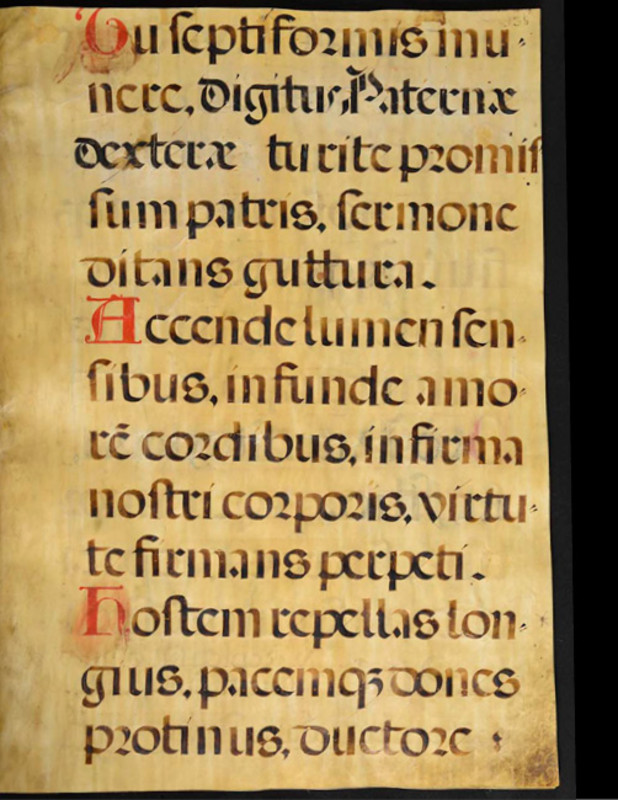 Tu septiformis mu-
nere, Digitus Paternæ
dexteræ tu rite promis
sum patris, sermone
ditans guttura.
Accende lumen sen-
sibus, infunde amo-
rē cordibus, infirma
nostri corporis, virtu-
te firmans perpeti.
Hostem repellas lon-
gius, pacemqꝫ dones
protinus, ductore :